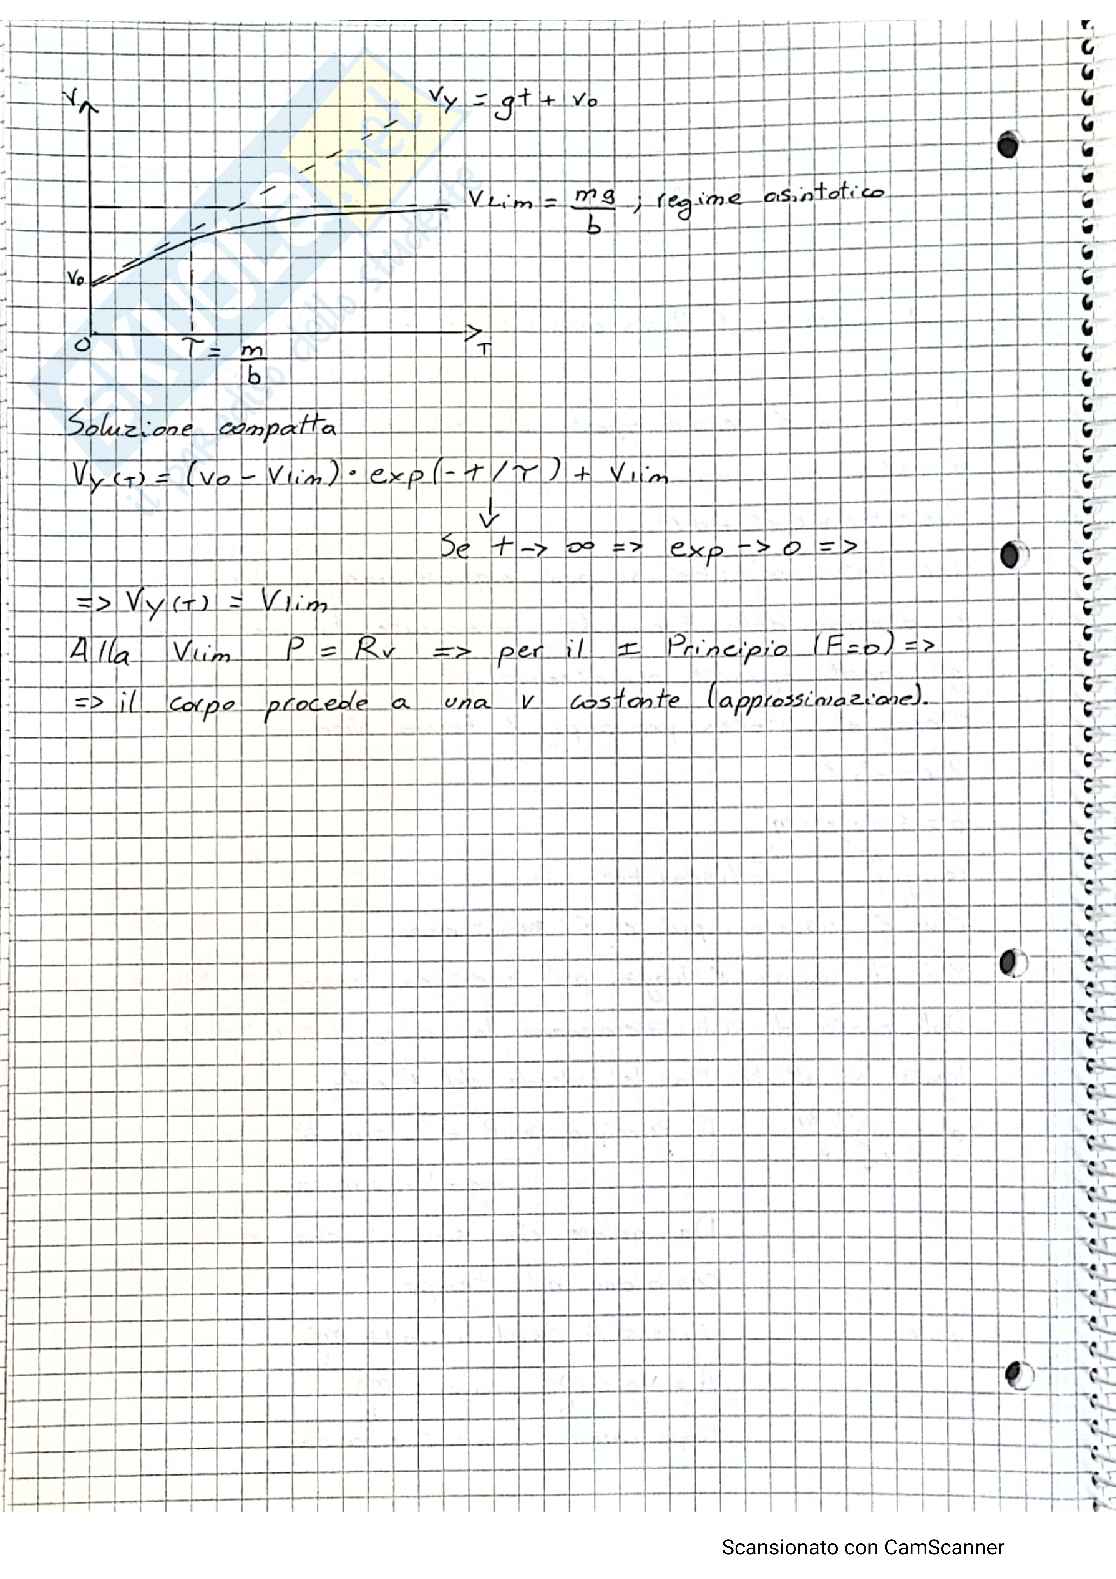 V
Vy = gt + v0
VLim = mg/b ; regime asintotico
v0
0
τ = m/b
T
Soluzione compatta
Vy(T) = (v0 - Vlim) · exp(-t/τ) + Vlim
↓
Se t -> ∞ => exp -> 0 =>
=> Vy(T) = Vlim
Alla Vlim P = Rv => per il I Principio (F=0) =>
=> il corpo procede a una v costante (approssimazione).
SKUOLA.net
il paradiso dello studente
Scansionato con CamScanner